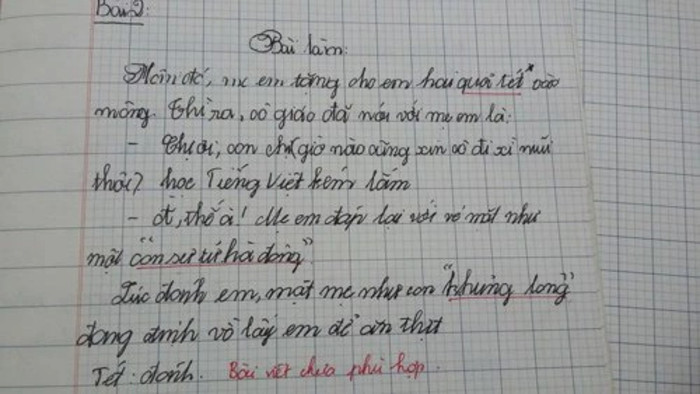 Bài 2:
Bài làm:
Hôm đó, mẹ em tặng cho em hai quả tét* vào
mông. Thì ra, cô giáo đã nói với mẹ em là:
- Chị ơi, con chị giờ nào cũng xin cô đi xì mũi
thôi? học Tiếng Việt kém lắm
- ồ, thế à! Mẹ em đáp lại với vẻ mặt như
một "con sư tử hà đông"
Lúc đánh em, mặt mẹ như con "khủng long"
đang định vồ lấy em để ăn thịt
Tét: đánh. Bài viết chưa phù hợp.